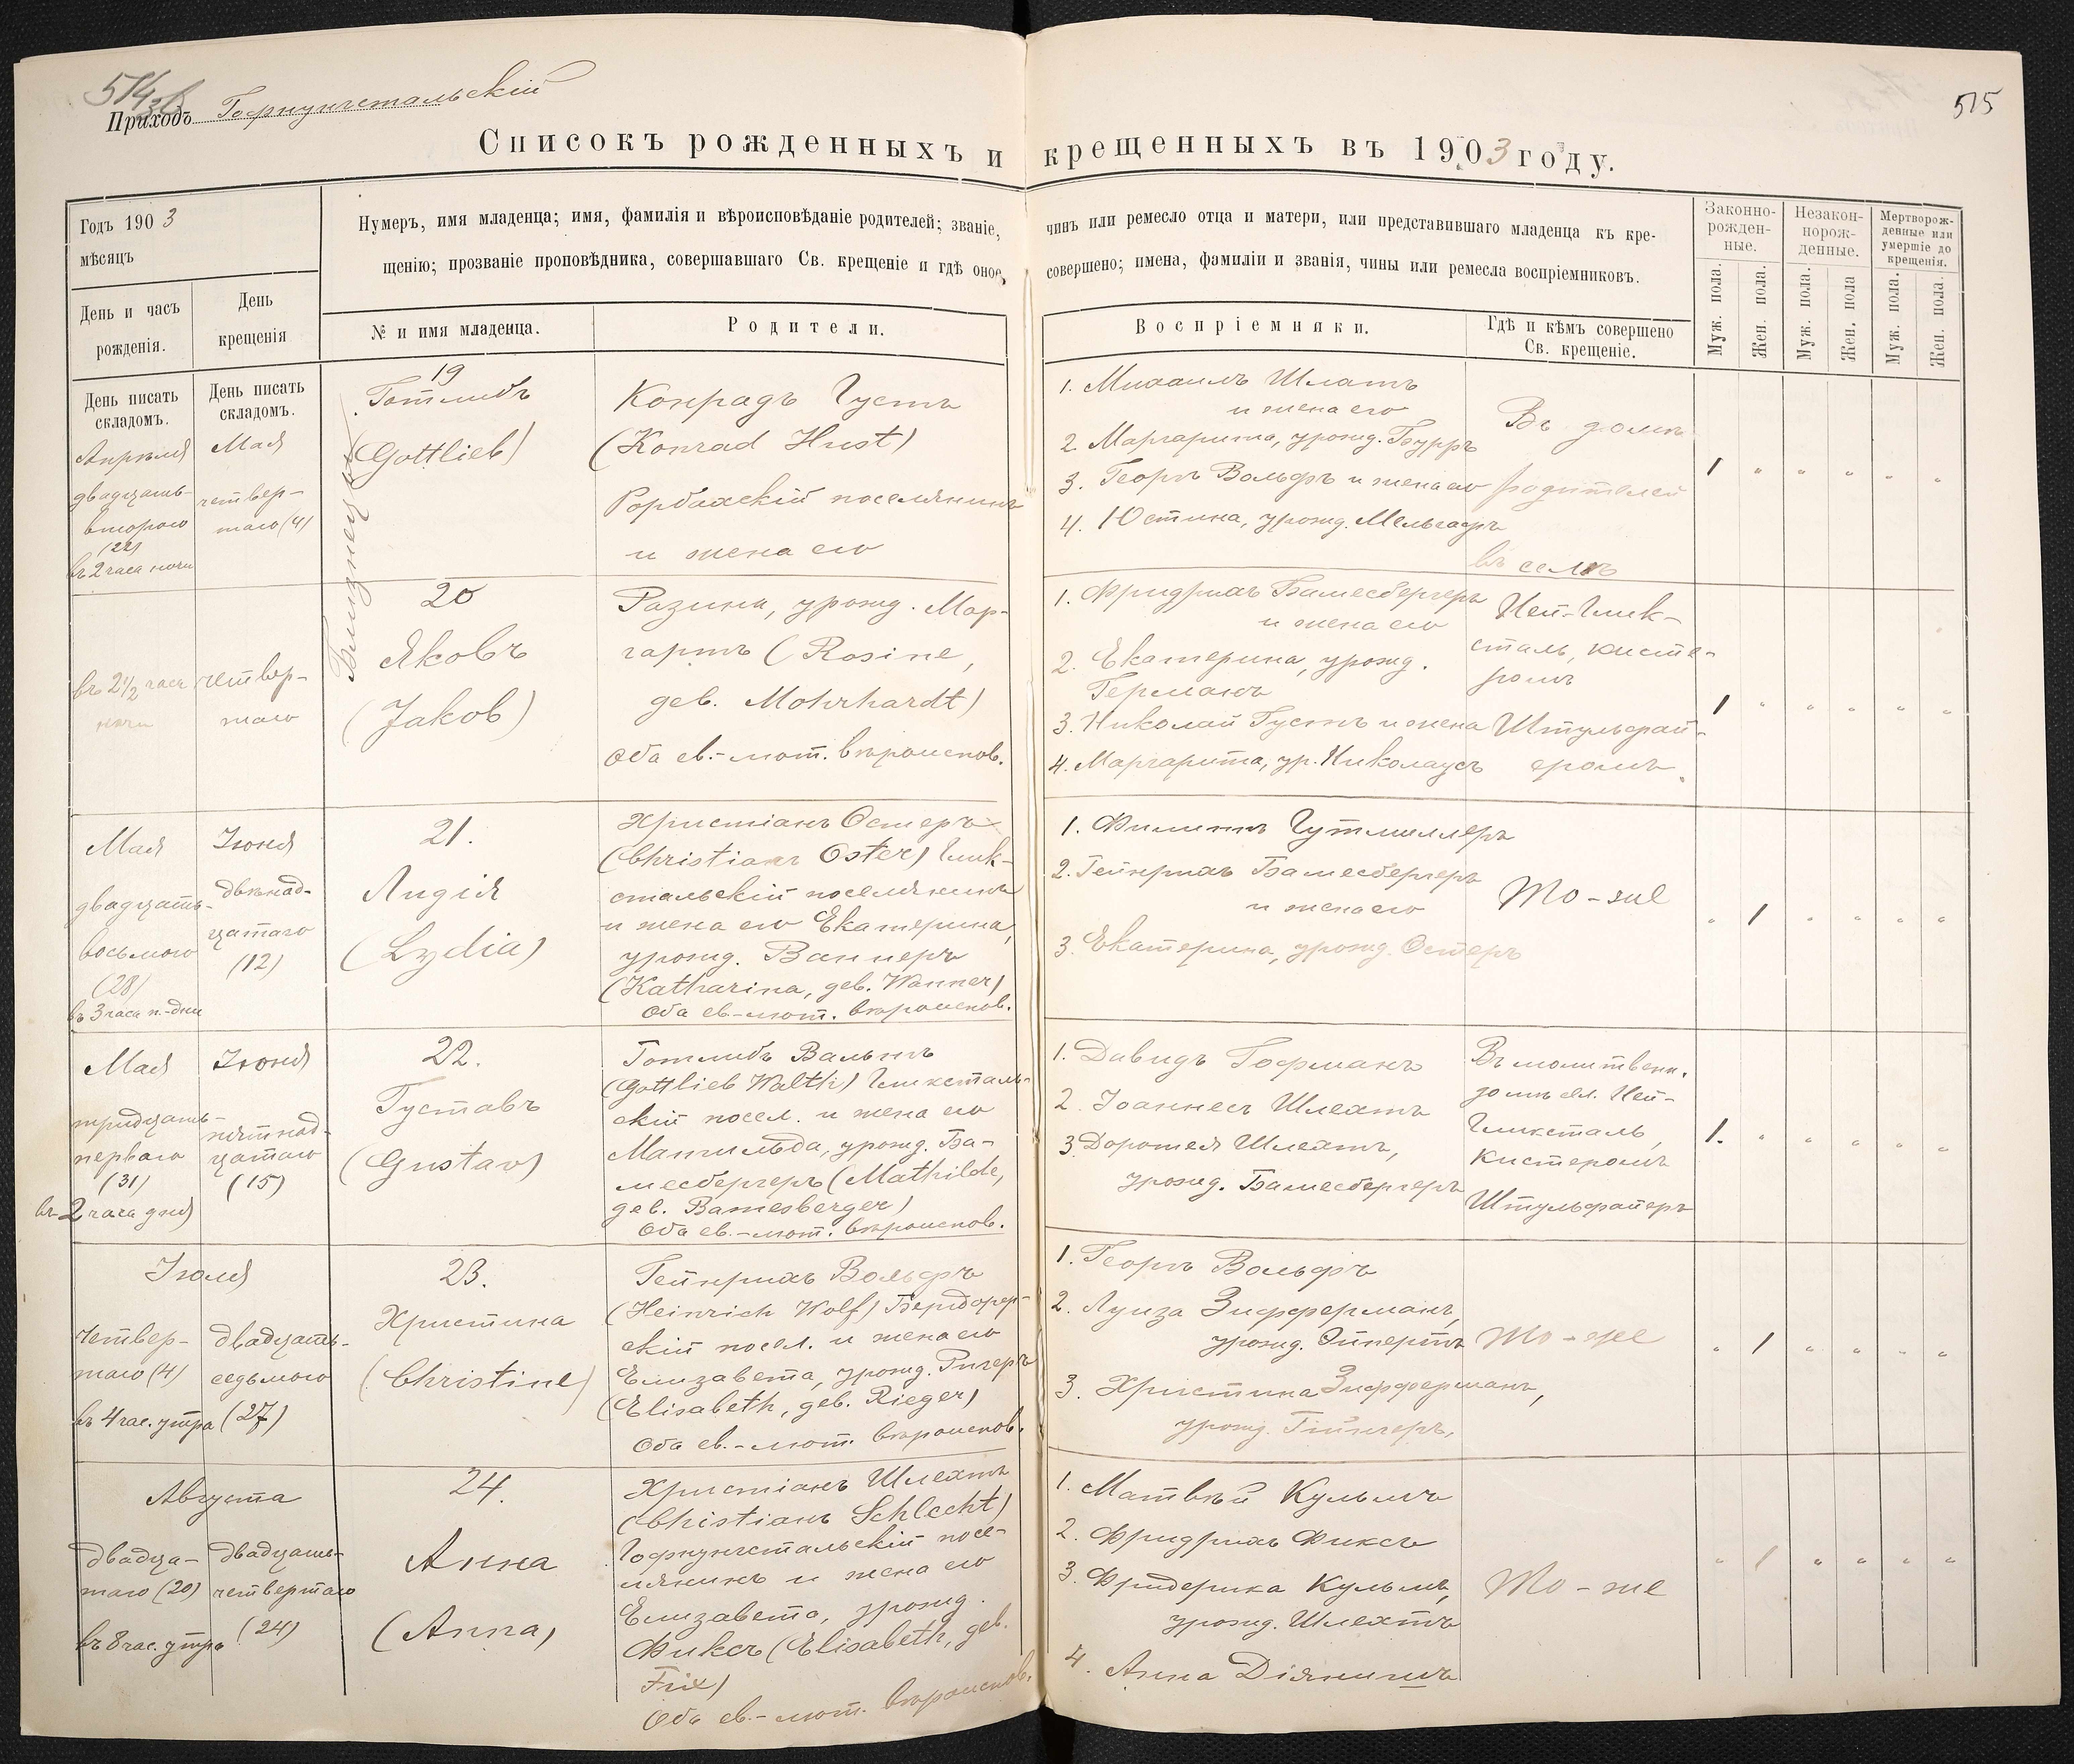 514
Приходъ Гофнунгстальскій
515
Списокъ рожденныхъ и крещенныхъ въ 1903 году.
Годъ 1903
мѣсяцъ
День и часъ
рожденія.
День
крещенія
Нумеръ, имя младенца; имя, фамилія и вѣроисповѣданіе родителей; званіе, чинъ или ремесло отца и матери, или представившаго младенца къ кре-
щенію; прозваніе проповѣдника, совершавшаго Св. крещеніе и гдѣ оное, совершено; имена, фэмиліи и званія, чины или ремесла воспріемниковъ.
№ и имя младенца.
Родители.
Воспріемники.
Гдѣ и кѣмъ совершено
Св. крещеніе.
Законно-
рожден-
ные.
Незакон-
норож-
денные.
Мертворож-
денные или
умершіе до
крещенія.
Муж. пола.
Жен. пола.
Муж. пола.
Жен. пола
Муж. пола.
Жен. пола.
День писать
складомъ.
День писать
складомъ.
Апрѣля
двадцать-
второго
(22)
въ 2 часа ночи
Мая
четвер-
таго (4)
Близнецы
19
Готлибъ
(Gottlieb)
Конрадъ Густъ
(Konrad Hust)
Рорбахскій поселянинъ
и жена его
1. Михаилъ Шлатъ
и жена его
2. Маргарита, урожд. Бурръ
3. Георгъ Вольфъ и жена его
4. Юстина, урожд. Мельгафъ
Въ домѣ
родителей
въ селѣ
1 " " " " "
въ 2 1/2 часа
ночи
четвер-
таго
20
Яковъ
(Jakob)
Розина, урожд. Мор-
гартъ (Rosine,
geb. Mohrhardt)
Оба ев.-лют. вѣроиспов.
1. Фридрихъ Бамесбергеръ
и жена его
2. Екатерина, урожд.
Германъ
3. Николай Густъ и жена
4. Маргарита, ур. Николаусъ
Ней-Глик-
сталь, кисте-
ромъ
Штульфай-
еромъ
1 " " " " "
Мая
двадцать-
восьмого
(28)
въ 3 часа п.-дни
Іюня
двѣнад-
цатаго
(12)
21.
Лидія
(Lydia)
Христіанъ Остеръ
(Christian Oster) Глик-
стальскій поселянинъ
и жена его Екатерина,
урожд. Ваннеръ
(Katharina, geb. Wanner)
Оба ев.-лют. вѣроиспов.
1. Филиппъ Гутмиллеръ
2. Гейнрихъ Бамесбергеръ
и жена его
3. Екатерина, урожд. Остеръ
То-же
" 1 " " " "
Мая
тридцать-
перваго
(31)
въ 2 часа дня
Іюня
пятнад-
цатаго
(15)
22.
Густавъ
(Gustav)
Готлибъ Вальтъ
(Gottlieb Walth) Гликсталь-
скій посел. и жена его
Матильда, урожд. Ба-
месбергеръ (Mathilde,
geb. Bamesberger)
Оба ев.-лют. вѣроиспов.
1. Давидъ Гофманъ
2. Іоаннесъ Шлехтъ
3. Доротея Шлехтъ,
урожд. Бамесбергеръ
Въ молитвенн.
домѣ сел. Ней-
Гликсталь,
кистеромъ
Штульфайеръ
1. " " " " "
Іюля
четвер-
таго (4)
въ 4 час. утра
двадцать-
седьмого
(27)
23.
Христина
(Christine)
Гейнрихъ Вольфъ
(Heinrich Wolf) Бергдорф-
скій посел. и жена его
Елизавета, урожд. Ригеръ
(Elisabeth, geb. Rieger)
Оба ев.-лют. вѣроиспов.
1. Георгъ Вольфъ
2. Луиза Зифферманъ,
урожд. Эппертъ
3. Христина Зифферманъ,
То-же
" 1 " " " "
Августа
двадца-
таго (20)
въ 8 час. утра
двадцать-
четвертаго
(24)
24.
Анна
(Anna)
Христіанъ Шлехтъ
(Christian Schlecht)
Гофнунгстальскій посе-
лянинъ и жена его
Елизавета, урожд.
Фиксъ (Elisabeth, geb.
Fix)
Оба ев.-лют. вѣроиспов.
1. Матвѣй Кульмъ
2. Фридрихъ Фиксъ
3. Фридерика Кульмъ,
урожд. Шлехтъ
4. Анна
То-же
" 1 " " " "